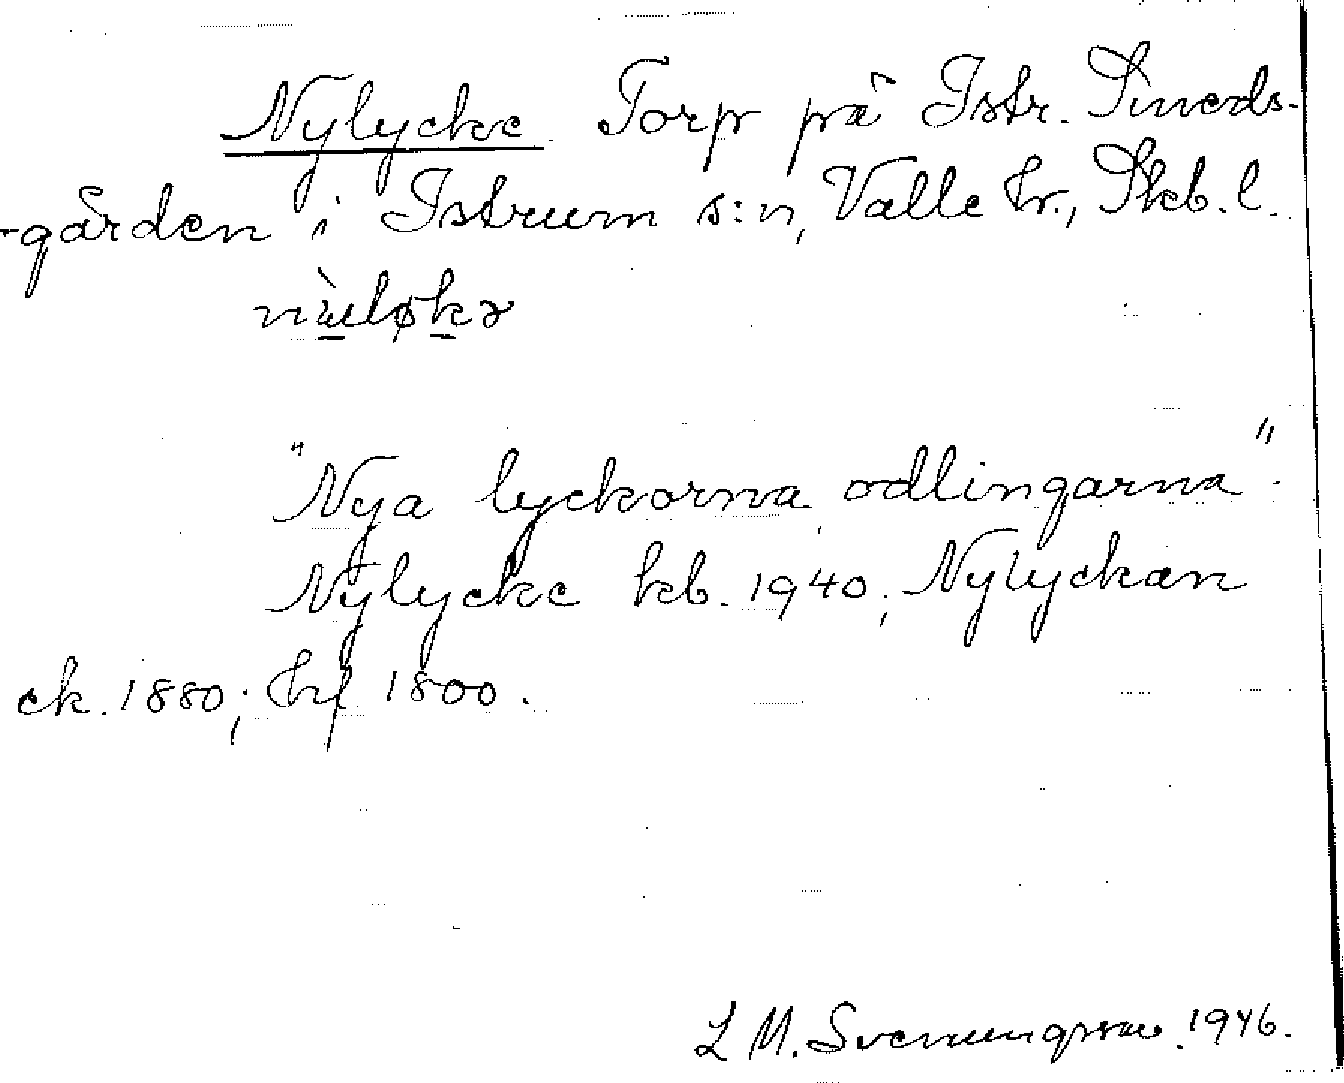 Nylycke Torp på Istr. Smeds-
-gården i Istrum s:n, Valle hr., Skb. l.
"Nya lyckorna, odlingarna".
Nylycke kb. 1940; Nylyckan
ek. 1880; hf 1800.
L M. Svenungsson. 1946.